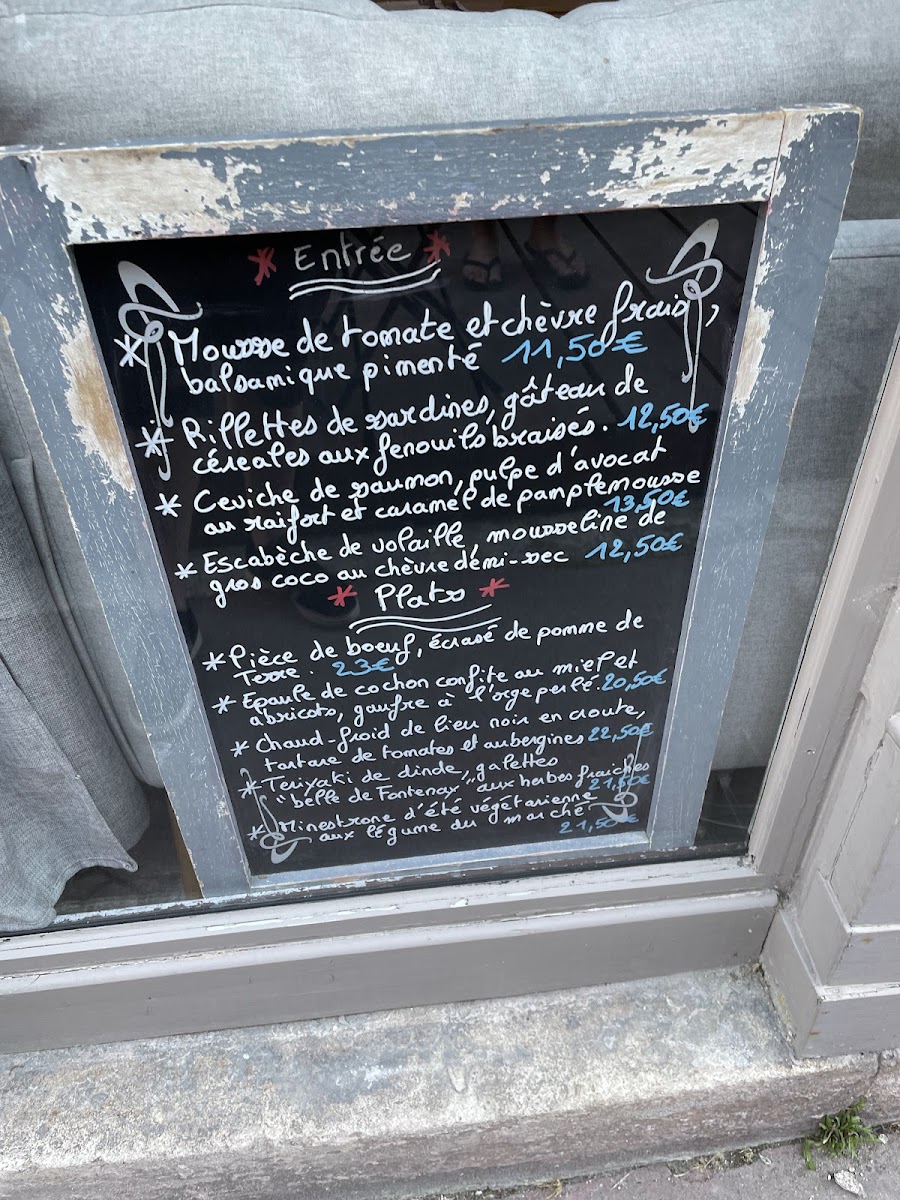 * Entrée *
* Mousse de tomate et chèvre frais,
balsamique pimenté 11,50€
* Rillettes de sardines, gâteau de
céreales aux fenouils braisés. 12,50€
* Ceviche de saumon, pulpe d'avocat
au raifort et caramel de pamplemousse
13,50€
* Escabèche de volaille, mousseline de
gros coco au chèvre demi-sec 12,50€
* Plats *
* Pièce de boeuf, écrasé de pomme de
Terre. 23€
* Epaule de cochon confite au miel et
abricots, gaufre à l'orge perlé. 20,50€
* Chaud-froid de lieu noir en croute,
tartare de tomates et aubergines 22,50€
* Teriyaki de dinde, galettes
"belle de Fontenay" aux herbes fraiches
21,50€
* Minestrone d'été végétarienne
aux légume du marché
21,50€